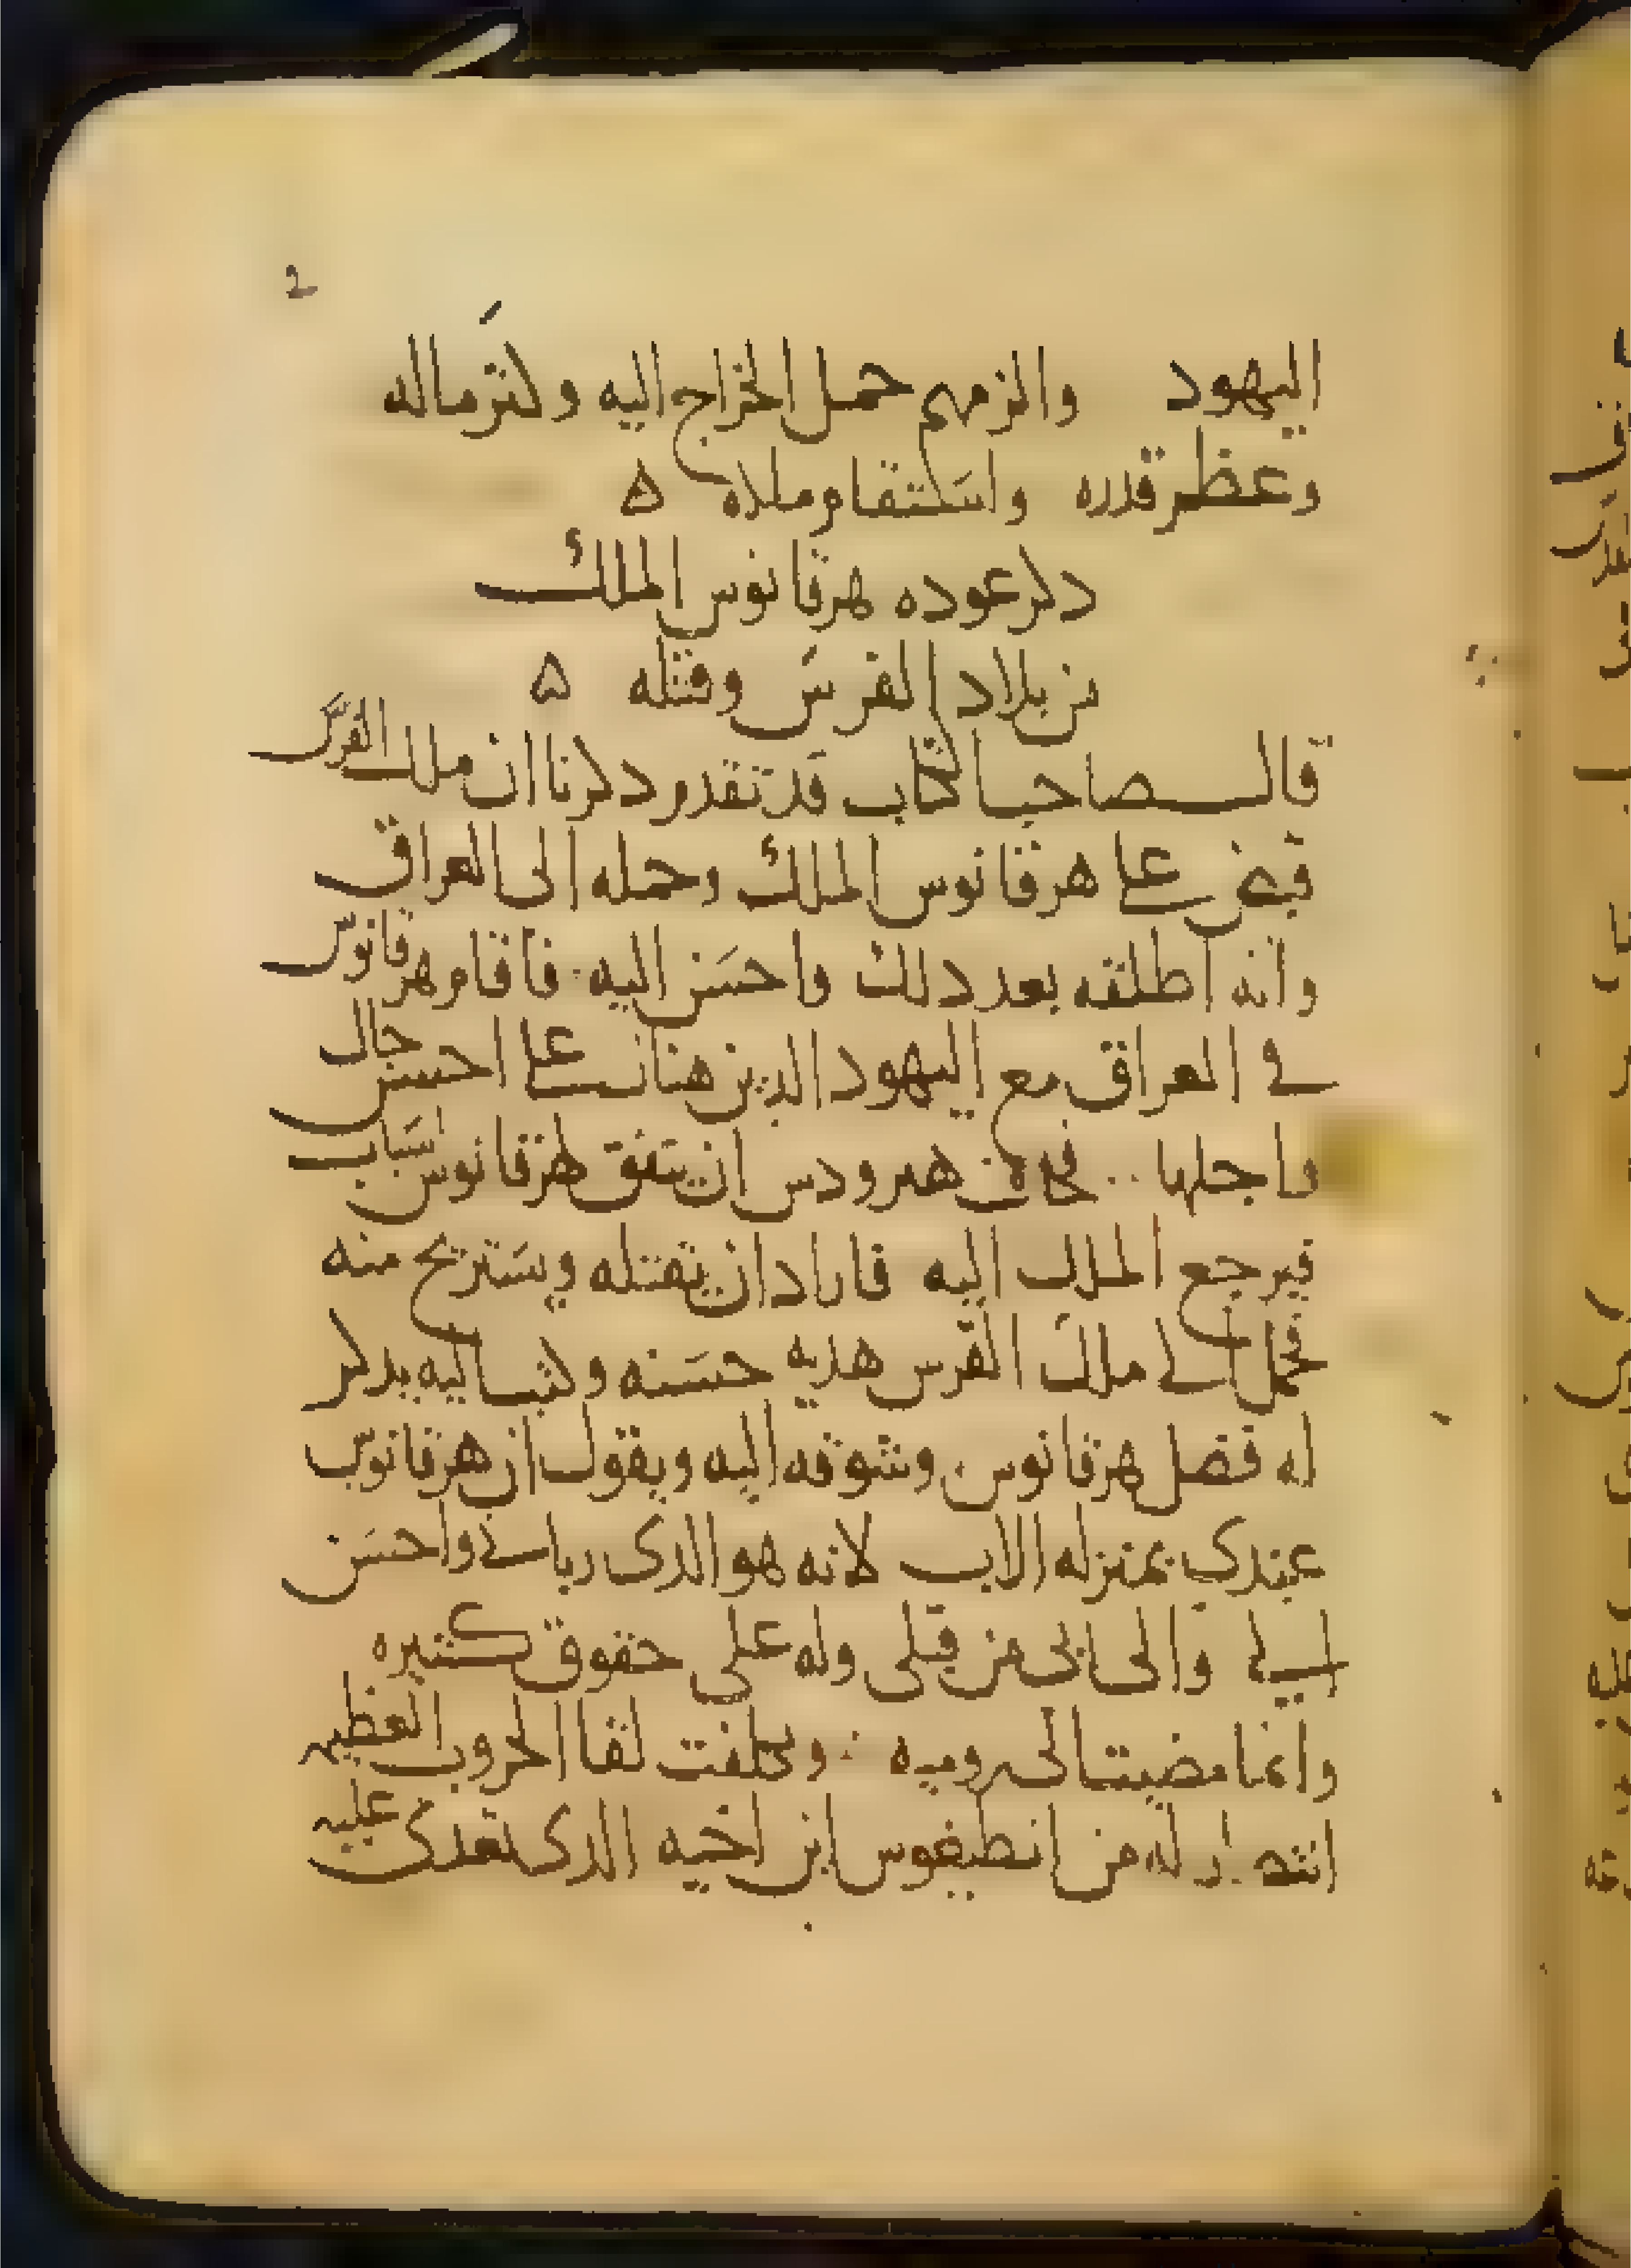 2
اليهود والزمهم حمل الخراج اليه وكثر ماله
وعظم قدره واستقام ملكه ه
ذكر عوده هرقانوس الملك
من بلاد الفرس وقتله ه
قال صاحب الكتاب قد تقدم ذكرنا ان ملك الفرس
قبض على هرقانوس الملك وحمله الى العراق
وانه اطلقه بعد ذلك واحسن اليه فاقام هرقانوس
في العراق مع اليهود الدين هناك على احسن حال
واجلها فخاف هيرودس ان يتفق لهرقانوس اسباب
فيرجع الملك اليه فاراد ان يقتله ويستريح منه
فحمل الى ملك الفرس هديه حسنه وكتب اليه يدكر
له فضل هرقانوس وشوقه اليه ويقول ان هرقانوس
عندي بمنزله الاب لانه هو الدى رباني واحسن
الي والى ابى من قبلى وله على حقوق كثيره
وانما مضيت الى روميه وتكلفت لقا الحروب العظيمه
انتصار له من انطيغوس ابن اخيه الدى تعدى عليه